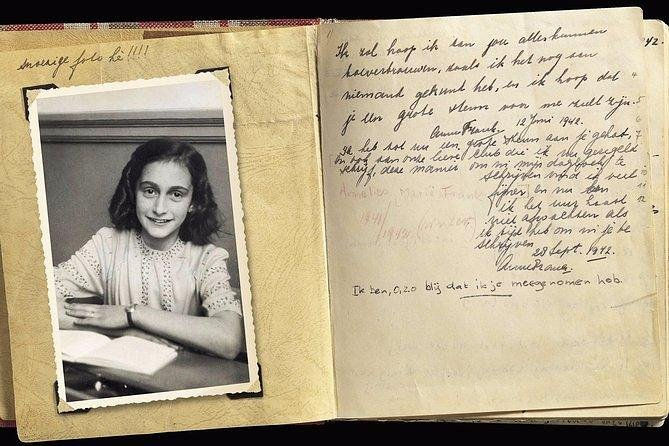 snoezige foto hè!!!!
Ik zal hoop ik aan jou alles kunnen
toevertrouwen, zoals ik het nog aan
niemand gekund heb, en ik hoop dat
je een grote steun voor me zult zijn.
Anne Frank. 12 Juni 1942.
Ik heb tot nu een grote steun aan je gehad,
en ook aan onze lieve club die ik nu geregeld
schrijf, deze manier om in mijn dagboek te
schrijven vind ik veel
fijner en nu kan
ik het uur haast
niet afwachten als
ik tijd heb om in je te
schrijven
28 Sept. 1942.
Anne Frank.
Ik ben, o, zo blij dat ik je meegenomen heb.
Annelies Marie Frank
1942
42.